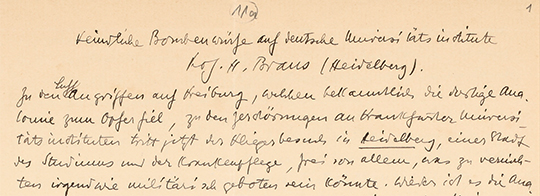 110
1
Feindliche Bombenwürfe auf deutsche Universitätsinstitute
Prof. H. Braus (Heidelberg).
Zu den Luftangriffen auf Freiburg, welchen bekanntlich die dortige Ana-
tomie zum Opfer fiel, zu den Zerstörungen an Frankfurter Universi-
tätsinstituten tritt jetzt der Fliegerbesuch in Heidelberg, einer Stadt
des Studiums und der Krankenpflege, frei von allem, was zu vernich-
ten irgendwie militärisch geboten sein könnte. Wieder ist es die Ana